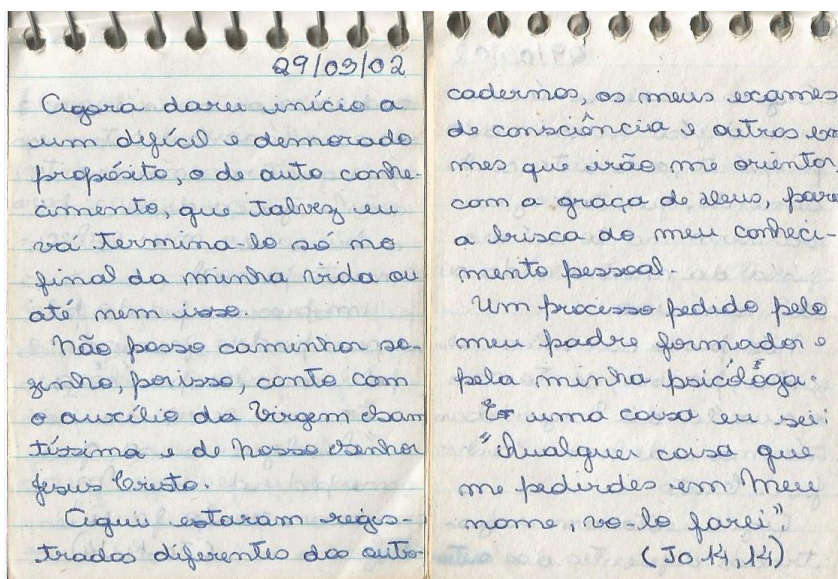 29/03/02
Agora darei início a
um difícil e demorado
propósito, o de auto conhe-
cimento, que talvez eu
vá termina-lo só no
final da minha vida ou
até nem isso.
Não posso caminhar so-
zinho, porisso, conto com
o auxílio da Virgem San
tíssima e de Nosso Senhor
Jesus Cristo.
Aqui estaram regis-
trados diferentes dos outro
cadernos, os meus exames
de consciência e outros exa
mes que irão me orientar,
com a graça de Deus, para
a brisca do meu conheci-
mento pessoal.
Um processo pedido pelo
meu padre formador e
pela minha psicóloga.
E uma coisa eu sei:
"Qualquer coisa que
me pedirdes em Meu
nome, vo-lo farei".
(Jo 14,14)